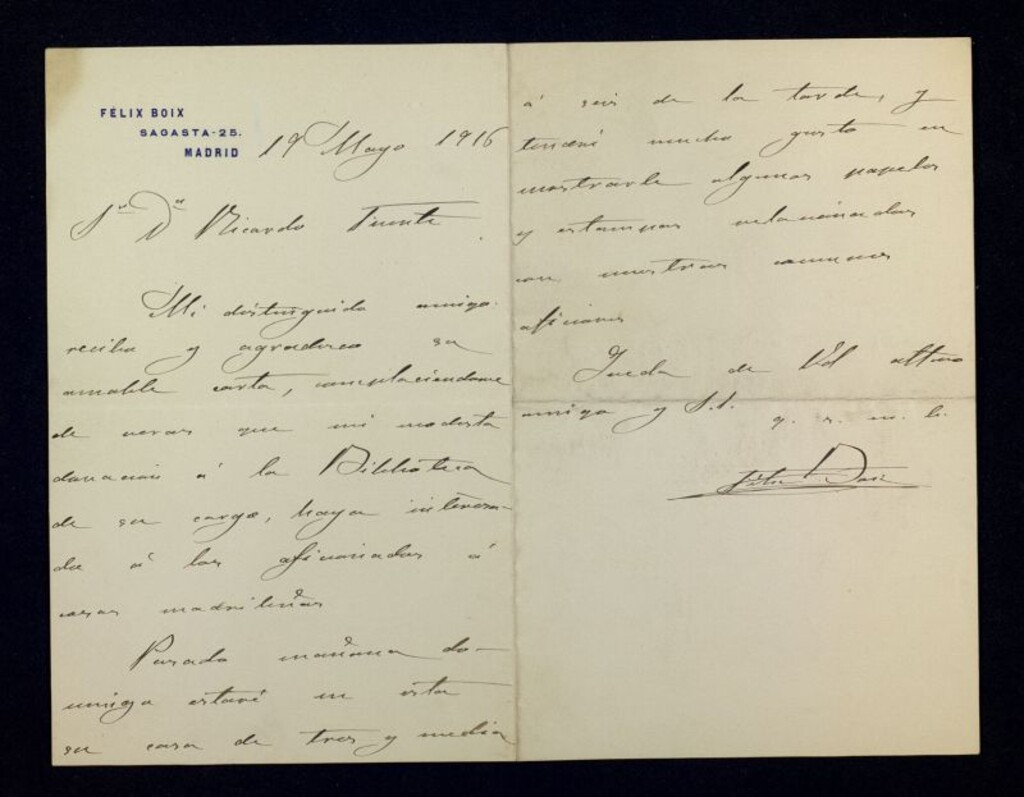 FÉLIX BOIX
SAGASTA-25.
MADRID
19 Mayo 1916
Sr. Dn. Ricardo Fuente
Mi distinguido amigo:
recibo y agradezco su
amable carta, complaciendome
de veras que mi modesta
donacion á la Biblioteca
de su cargo, haya interesa-
do á los aficionados á
cosas madrileñas
Pasado mañana do-
mingo estaré en esta
su casa de tres y media
á seis de la tarde, y
tendré mucho gusto en
mostrarle algunos papeles
y estampas relacionados
con nuestras comunes
aficiones
Queda de Vd attmo
amigo y S.S.
q. s. m. b.
Félix Boix